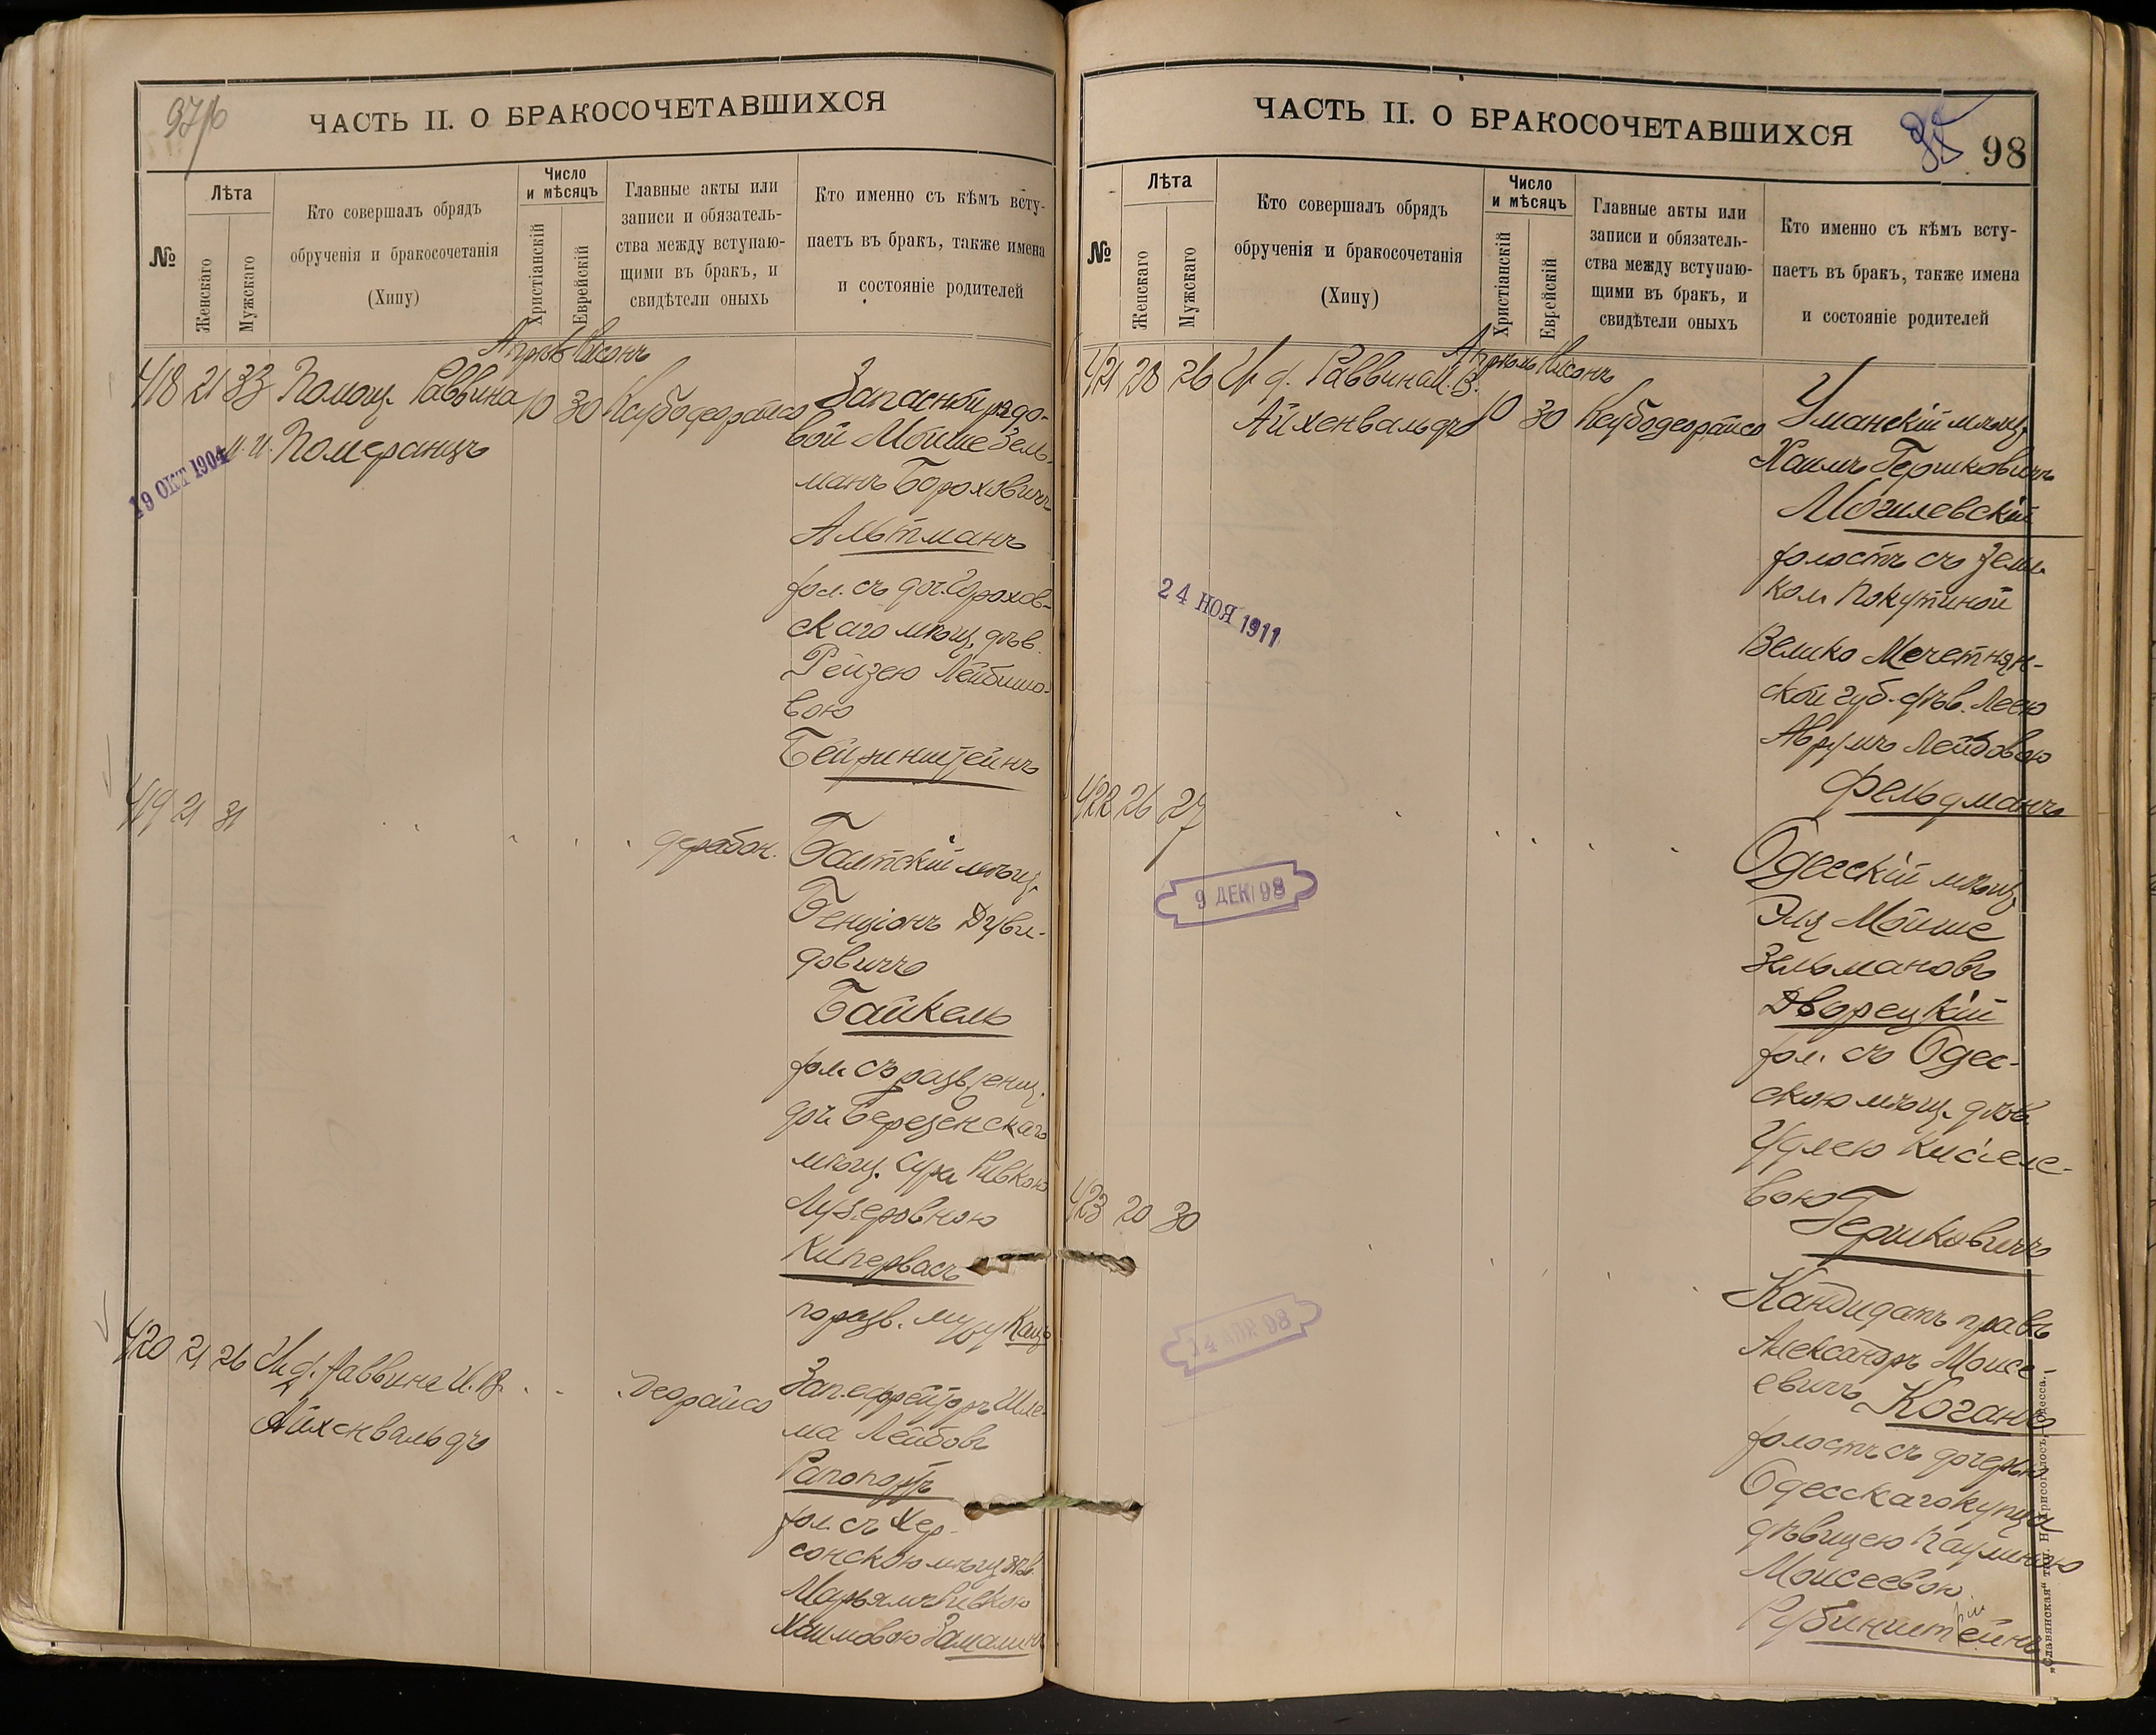 ЧАСТЬ II. О БРАКОСОЧЕТАВШИХСЯ
№
Лѣта
Женскаго
Мужскаго
Кто совершалъ обрядъ
обрученія и бракосочетанія
(Хипу)
Число
и мѣсяцъ
Христіанскій
Еврейскій
Главные акты или
записи и обязатель-
ства между вступаю-
щими въ бракъ, и
свидѣтели оныхъ
Кто именно съ кѣмъ всту-
паетъ въ бракъ, также имена
и состояніе родителей
418 21 33 Помощ. Раввина 10 30
И. И. Померанцъ
19 ОКТ 1904
Запасной рядо-
вой Мойше Зель-
манъ Бороховичъ
Альтманъ
хол. съ доч.
скаго мѣщ. дѣв.
Рейзею Лейбишо-
вою
419 21 31
Балтскій мѣщ.
Бенціонъ Дуви-
довичъ
Байкель
хол. съ
доч. Березенскаго
мѣщ. Сура Ривкою
Лузеровною
Кипервасъ
по разв. мужу Кацъ
420 21 26 И. д. Раввина И. В.
Айхенвальдъ
Деорайсо
Зап. ефрейторъ Шле-
ма Лейбовъ
Рапопортъ
хол. съ Хер-
сонскою мѣщ. дѣв.
Марьямъ Ривкою
Хаимовою
ЧАСТЬ II. О БРАКОСОЧЕТАВШИХСЯ
98
№
Лѣта
Женскаго
Мужскаго
Кто совершалъ обрядъ
обрученія и бракосочетанія
(Хипу)
Число
и мѣсяцъ
Христіанскій
Еврейскій
Главные акты или
записи и обязатель-
ства между вступаю-
щими въ бракъ, и
свидѣтели оныхъ
Кто именно съ кѣмъ всту-
паетъ въ бракъ, также имена
и состояніе родителей
Апрѣль Нисонъ
421 28 26 И. д. Раввина И. В.
Айхенвальдъ 10 30
24 НОЯ 1911
Уманскій мѣщ.
Хаимъ Гершковичъ
Могилевскій
холостъ съ
кол.
Велико Мечетнян-
ской губ. дѣв. Леею
Аврумъ Лейбовою
Фельдманъ
422 26 27
9 ДЕК 98
Одесскій мѣщ.
Эля Мойше
Зельмановъ
Дворецкій
хол. съ Одес-
скою мѣщ. дѣв.
Удлею Кисіеле-
вою
Гершковичъ
423 20 30
14 АПР 98
Кандидатъ правъ
Александръ Моисе-
евичъ Коганъ
холостъ съ дочерью
Одесскаго купца
дѣвицею Паулиною
Моисеевою
Рубинштейнъ
„Славянская“ тип. Н. Хрисогелосъ, Одесса.